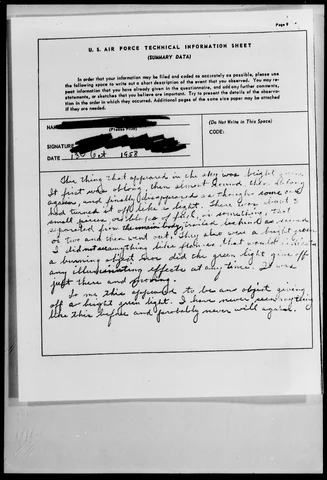 Page 8
U. S. AIR FORCE TECHNICAL INFORMATION SHEET
(SUMMARY DATA)
In order that your information may be filed and coded as accurately as possible, please use
the following space to write out a short description of the event that you observed. You may re-
peat information that you have already given in the questionnaire, and add any further comments,
statements, or sketches that you believe are important. Try to present the details of the observa-
tion in the order in which they occurred. Additional pages of the same size paper may be attached
if they are needed.
NAME
(Please Print)
SIGNATURE
DATE 13 Oct 1958
(Do Not Write in This Space)
CODE:
The thing that appeared in the sky was bright green.
It first was oblong, then almost round, then oblong
again, and finally disappeared as though some one
had turned it off like a light. There were about 3
small pieces, or blobs of fire, or something, that
separated from the main body, trailed behind a second
or two and then went out. They also were a bright green.
I did not see anything like flames that would
a burning object nor did the green light give off
any illuminating effects at any time. It was
just there and moving.
To me this appeared to be an object giving
off a bright green light. I have never seen anything
like this before and probably never will again.